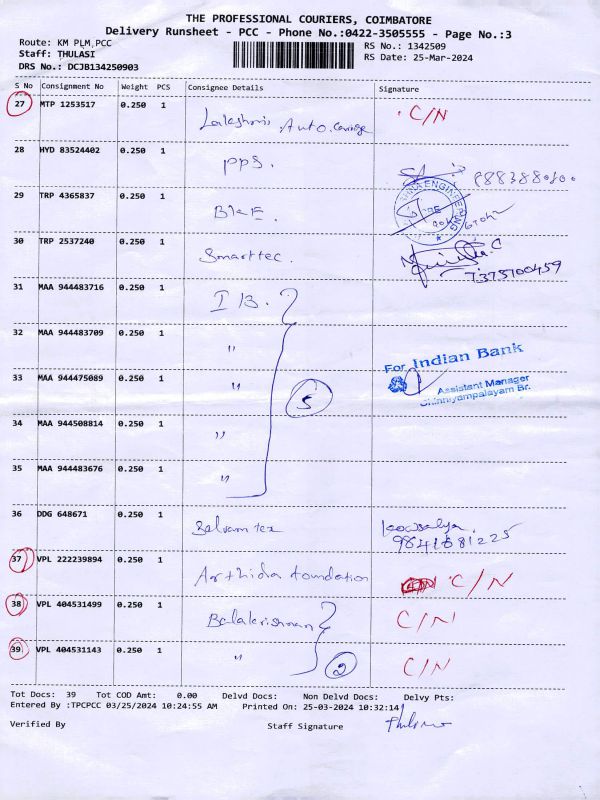 THE PROFESSIONAL COURIERS, COIMBATORE
Delivery Runsheet - PCC - Phone No.:0422-3505555 - Page No.:3
Route: KM PLM,PCC
RS No.: 1342509
Staff: THULASI
RS Date: 25-Mar-2024
DRS No.: DCJB134250903
S No Consignment No Weight PCS Consignee Details Signature
27 MTP 1253517 0.250 1 Lakshmi Auto C/N
28 HYD 83524402 0.250 1 PPS.
29 TRP 4365837 0.250 1
ENGINEERING
30 TRP 2537240 0.250 1 Smarttec.
7373700459
31 MAA 944483716 0.250 1 I B.
32 MAA 944483709 0.250 1 "
For Indian Bank
33 MAA 944475089 0.250 1 " 5
Assistant Manager
Chinniyampalayam Br.
34 MAA 944508814 0.250 1 "
35 MAA 944483676 0.250 1 "
36 DDG 648671 0.250 1 Kowsalya.
9841681225
37 VPL 222239894 0.250 1 foundation C/N
38 VPL 404531499 0.250 1 Balakrishnan C/N
39 VPL 404531143 0.250 1 " 2 C/N
Tot Docs: 39 Tot COD Amt: 0.00 Delvd Docs: Non Delvd Docs: Delvy Pts:
Entered By :TPCPCC 03/25/2024 10:24:55 AM Printed On: 25-03-2024 10:32:14
Verified By Staff Signature